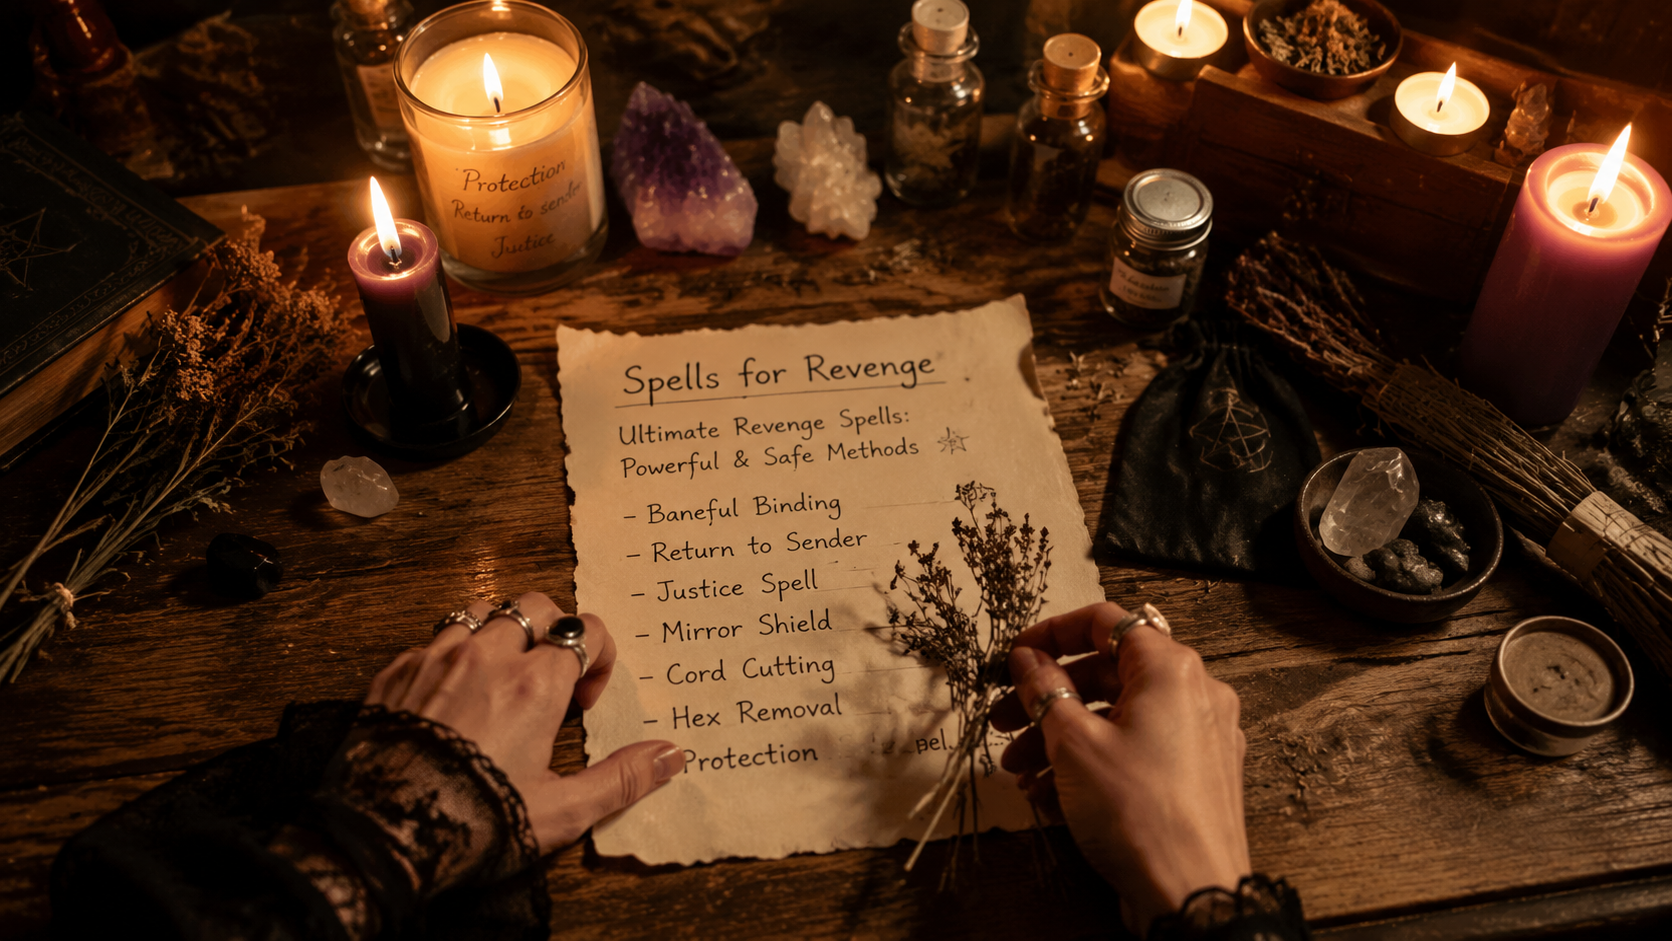 Protection
Return to sender
Justice
Spells for Revenge
Ultimate Revenge Spells:
Powerful & Safe Methods
– Baneful Binding
– Return to Sender
– Justice Spell
– Mirror Shield
– Cord Cutting
– Hex Removal
Protection